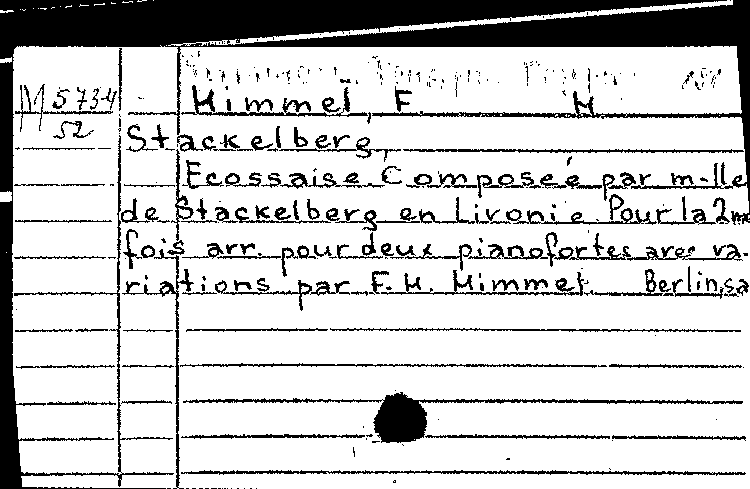 M 573-4
52
Himmel, F. H.
Stackelberg,
Ecossaise. Composeé par m-lle
de Stackelberg en Livonie. Pour la 2me
fois arr. pour deux pianofortes avec va-
riations par F. H. Himmel. Berlin, sa